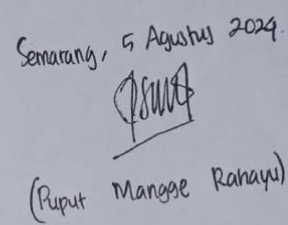 Semarang, 5 Agustus 2024.
(Puput Mangge Rahayu)